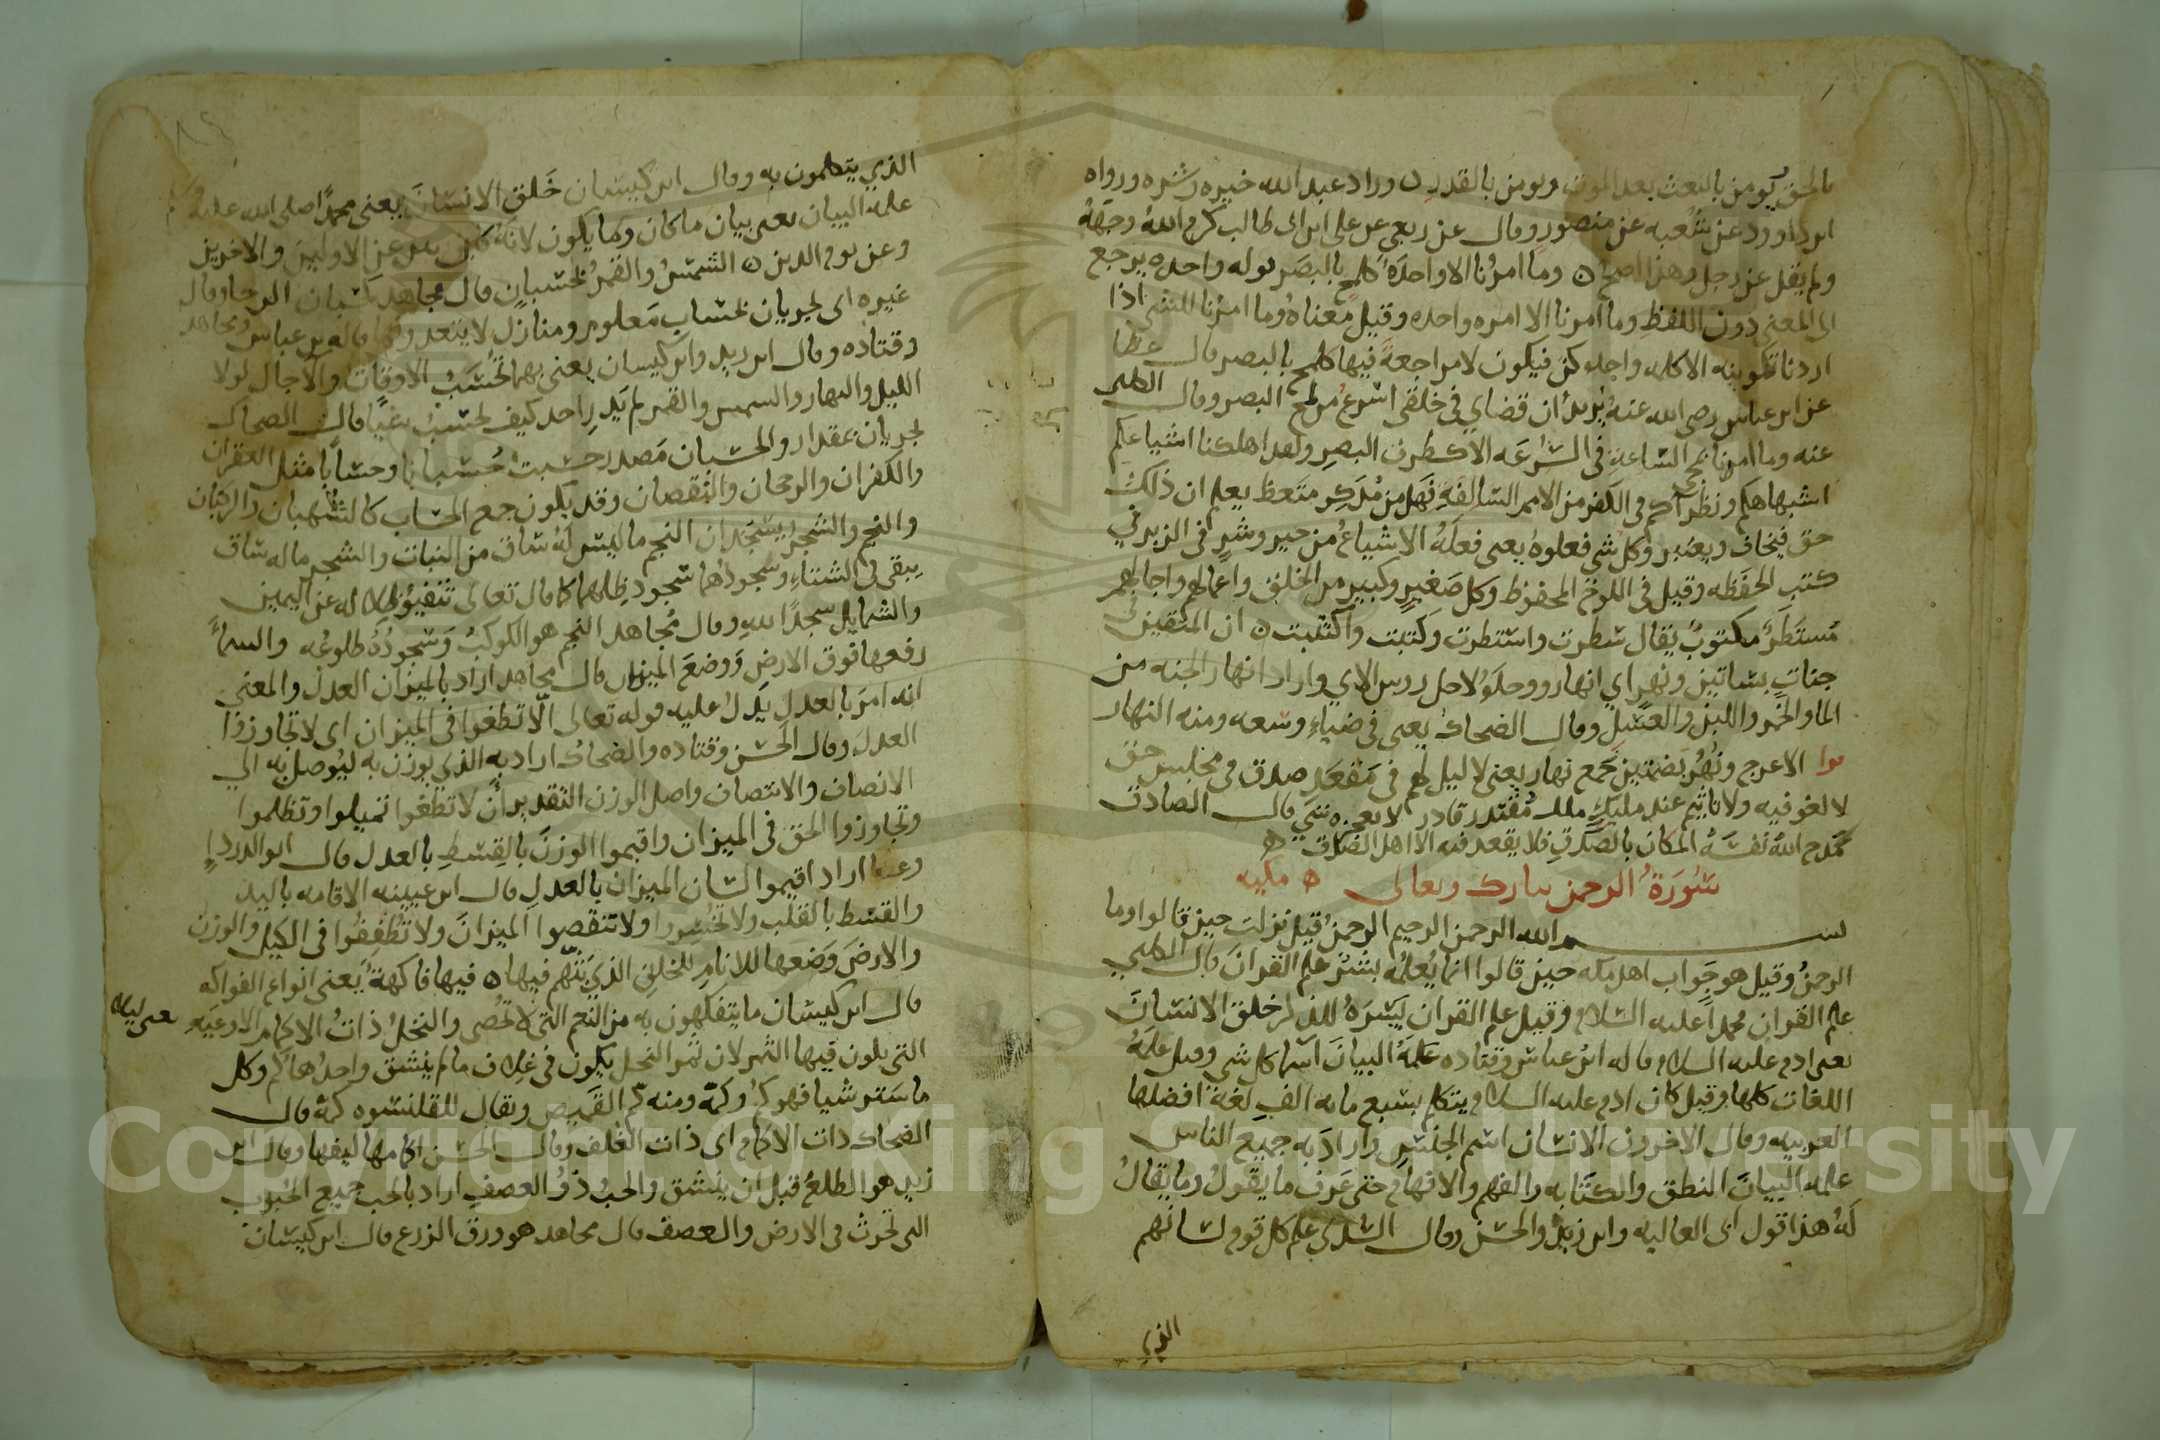 بالحق ويومن بالبعث بعد الموت ويومن بالقدر وزاد عبد الله خيره وشره ورواه
ابو داوود عن شعبه عن منصور وقال عن ربعي عن علي ابن ابي طالب كرم الله وجهه
ولم يقل عن رجل وهذا اصح وما امرنا الا واحدة كلمح بالبصر قوله واحده يرجع
الى المعنى دون اللفظ وما امرنا الا امره واحده وقيل معناه وما امرنا للشي اذا
اردنا تكوينه الا كلمه واحده كن فيكون لا مراجعة فيها كلمح بالبصر قال عطا
عن ابن عباس رضي الله عنه يريد ان قضاي في خلقي اسرع من لمح البصر وقال الكلبي
عنه وما امرنا بمجي الساعة في السرعه الا كطرف البصر ولقد اهلكنا اشياعكم
اشباهكم ونظراكم في الكفر من الامم السالفة فهل من مدكر متعظ يعلم ان ذلك
حق فيخاف ويعتبر وكل شي فعلوه يعني فعله الاشياع من خير وشر في الزبر في
كتب الحفظه وقيل في اللوح المحفوظ وكل صغير وكبير من الخلق واعمالهم واجالهم
مستطر مكتوب يقال سطرت واستطرت وكتبت واكتتبت ان المتقين في
جنات بساتين ونهر اي انهار ووحد لاجل روس الاي واراد انهار الجنه من
الما والخمر واللبن والعسل وقال الضحاك يعني في ضياء وسعه ومنه النهار
قرا الاعرج ونهر بضمتين جمع نهار يعني لا ليل لهم في مقعد صدق في مجلس حق
لا لغو فيه ولا تاثيم عند مليك ملك مقتدر قادر لا يعجزه شي قال الصادق
مدح الله نفسه المكان بالصدق فلا يقعد فيه الا اهل الصدق
سورة الرحمن تبارك وتعالى مكيه
بسم الله الرحمن الرحيم الرحمن قيل نزلت حين قالوا وما
الرحمن وقيل هو جواب اهل مكه حين قالوا انما يعلمه بشر علم القران قال الكلبي
علم القران محمدا عليه السلام وقيل علم القران يسره للذكر خلق الانسان
يعني ادم عليه السلام قاله ابن عباس وقتاده علمه البيان اسما كل شي وقيل علمه
اللغات كلها وقيل كان ادم عليه السلام يتكلم بسبع مايه الف لغة افضلها
العربيه وقال الاخرون الانسان اسم الجنس واراد به جميع الناس
علمه البيان النطق والكتابه والفهم والافهام حتى عرف ما يقول وما يقال
له هذا قول ابي العاليه وابن زيد والحسن وقال السدي علم كل قوم لسانهم
الذي
الذي يتكلمون به وقال ابن كيسان خلق الانسان يعني محمدا صلى الله عليه
علمه البيان يعني بيان ما كان وما يكون لانه كان عن الاولين والاخرين
وعن يوم الدين الشمس والقمر بحسبان قال مجاهد كحسبان الرحا وقال
غيره اي يجريان بحساب معلوم ومنازل لا يتعدونها قاله ابن عباس ومجاهد
وقتاده وقال ابن زيد وابن كيسان يعني بهما تحسب الاوقات والاجال لولا
الليل والنهار والشمس والقمر لم يدر احد كيف يحسب شيا قال الضحاك
يجريان بمقدار والحسبان مصدر حسبت حسبانا وحسابا مثل الغفران
والكفران والرجحان والنقصان وقد يكون جمع الحساب كالشهبان والركبان
والنجم والشجر يسجدان النجم ما ليس له ساق من النبات والشجر ماله ساق
يبقى في الشتاء وسجودهما سجود ظلهما كما قال تعالى تتفيؤ ظلاله عن اليمين
والشمايل سجدا لله وقال مجاهد النجم هو الكوكب وسجوده طلوعه والسماء
رفعها فوق الارض ووضع الميزان قال مجاهد اراد بالميزان العدل والمعنى
انه امر بالعدل يدل عليه قوله تعالى الا تطغوا في الميزان اي لا تجاوزوا
العدل وقال الحسن وقتاده والضحاك اراد به الذي يوزن به ليوصل به الى
الانصاف والانتصاف واصل الوزن التقدير أن لا تطغوا تميلوا وتظلموا
وتجاوزوا الحق في الميزان واقيموا الوزن بالقسط بالعدل قال ابو الدرداء
وعطا اراد اقيموا لسان الميزان بالعدل قال ابن عيينه الاقامه باليد
والقسط بالقلب ولا تخسروا ولا تنقصوا الميزان ولا تطففوا في الكيل والوزن
والارض وضعها للانام للخلق الذي بثهم فيها فيها فاكهة يعني انواع الفواكه
قال ابن كيسان ما يتفكهون به من النعم التي لا تحصى والنخل ذات الاكمام الاوعيه
التي يكون فيها الثمر لان ثمر النخل يكون في غلاف ما لم ينشق واحدها كم وكل
ما ستر شيا فهو كم وكمة ومنه كم القميص ويقال للقلنسوه كمة قال
الضحاك ذات الاكمام اى ذات الغلف وقال الحسن اكمامها ليفها وقال ابن
زيد هو الطلع قبل ان ينشق والحب ذو العصف اراد بالحب جميع الحبوب
التي تحرث في الارض والعصف قال مجاهد هو ورق الزرع قال ابن كيسان
Copyright © King Saud University